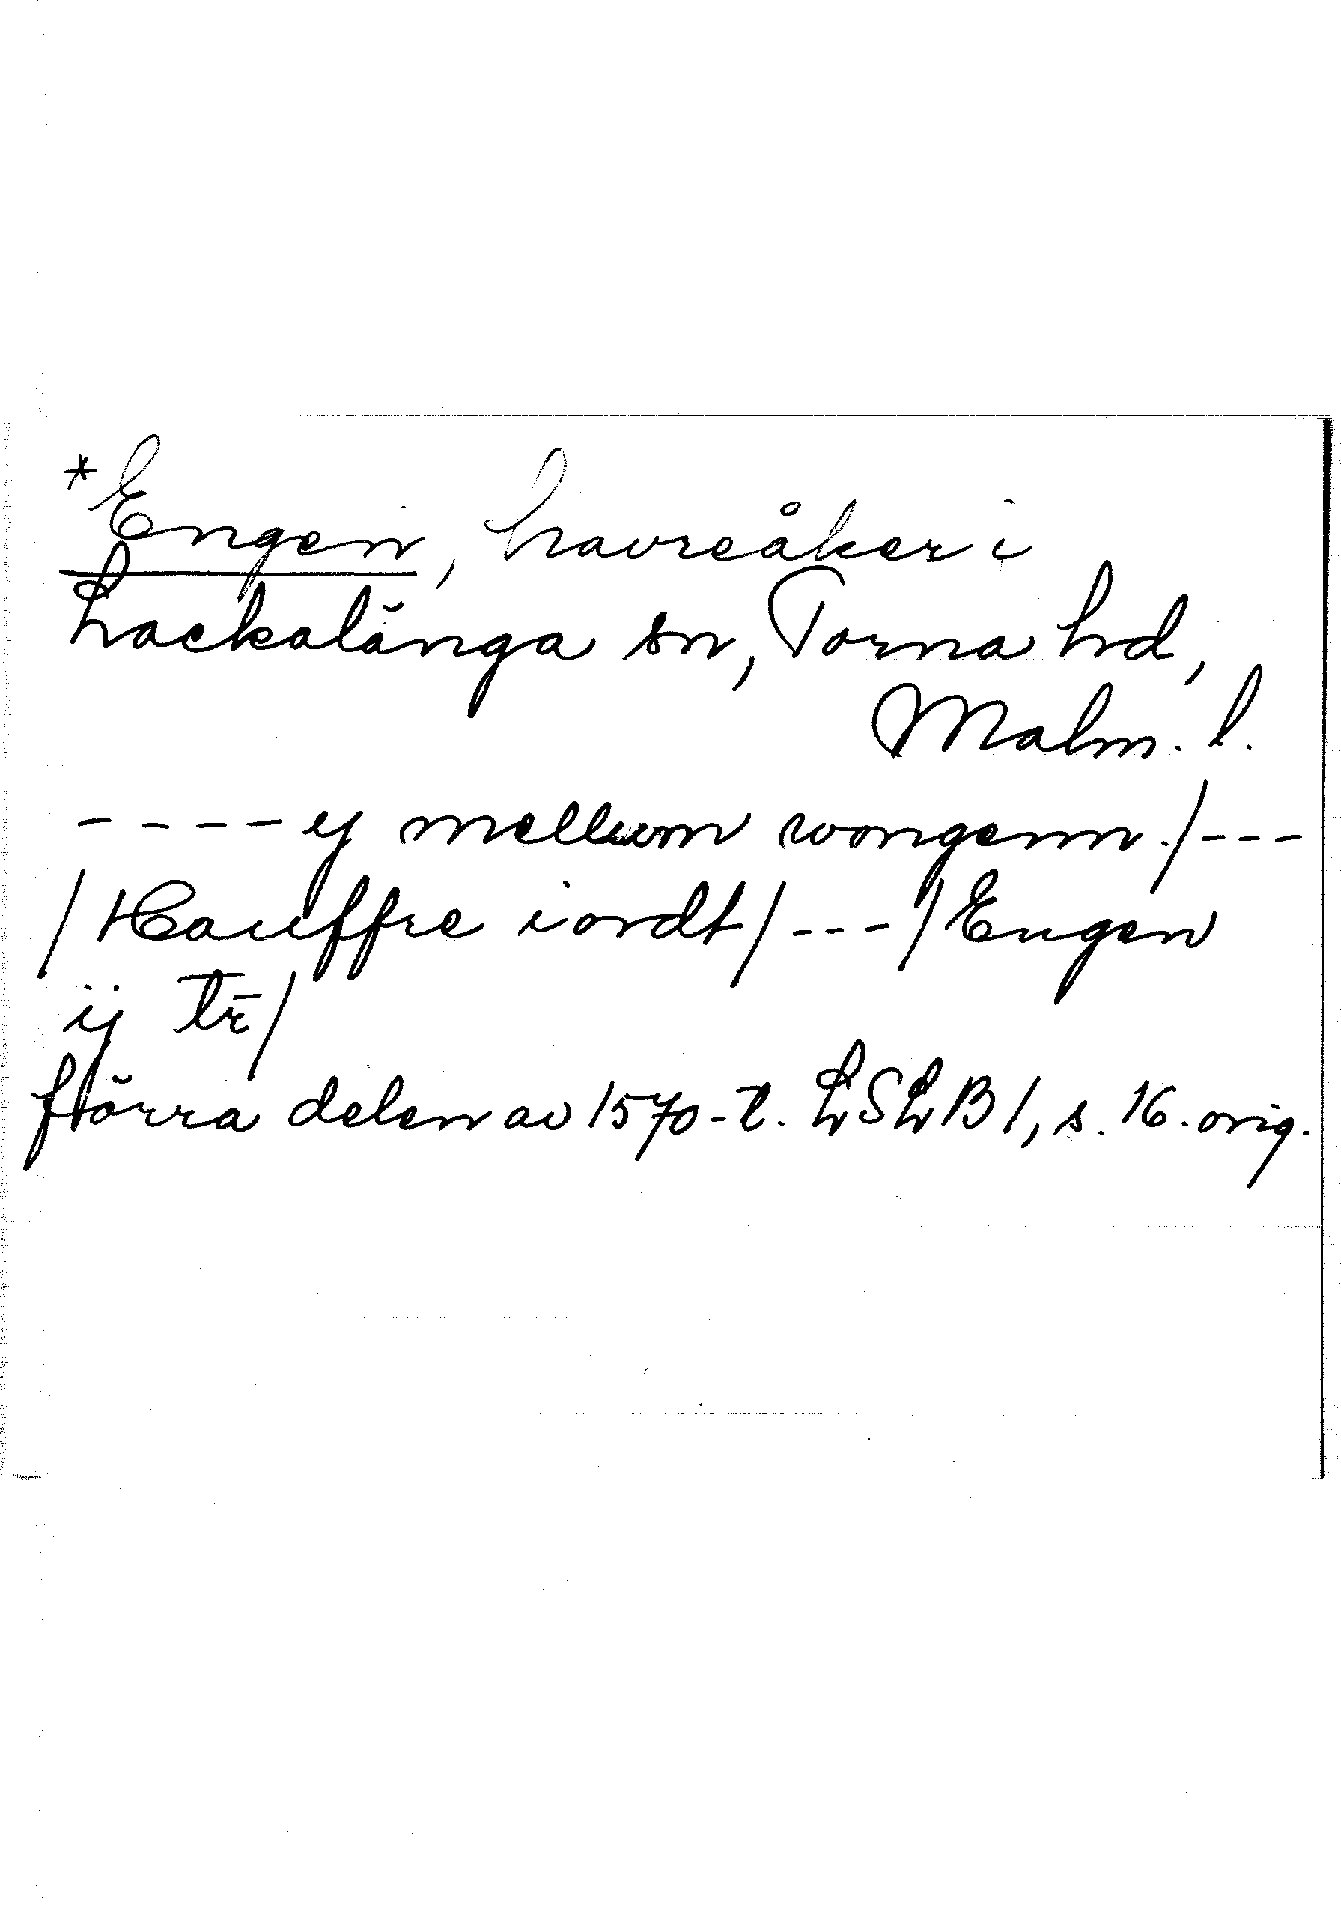 *Engen, havreåker i
Lackalänga sn, Torna hd,
Malm. l.
----ij mellum wongenn./---
/Hauffre iordt/---/Engen
ij tr/
förra delen av 1570-t. LSLB1, s. 16. orig.